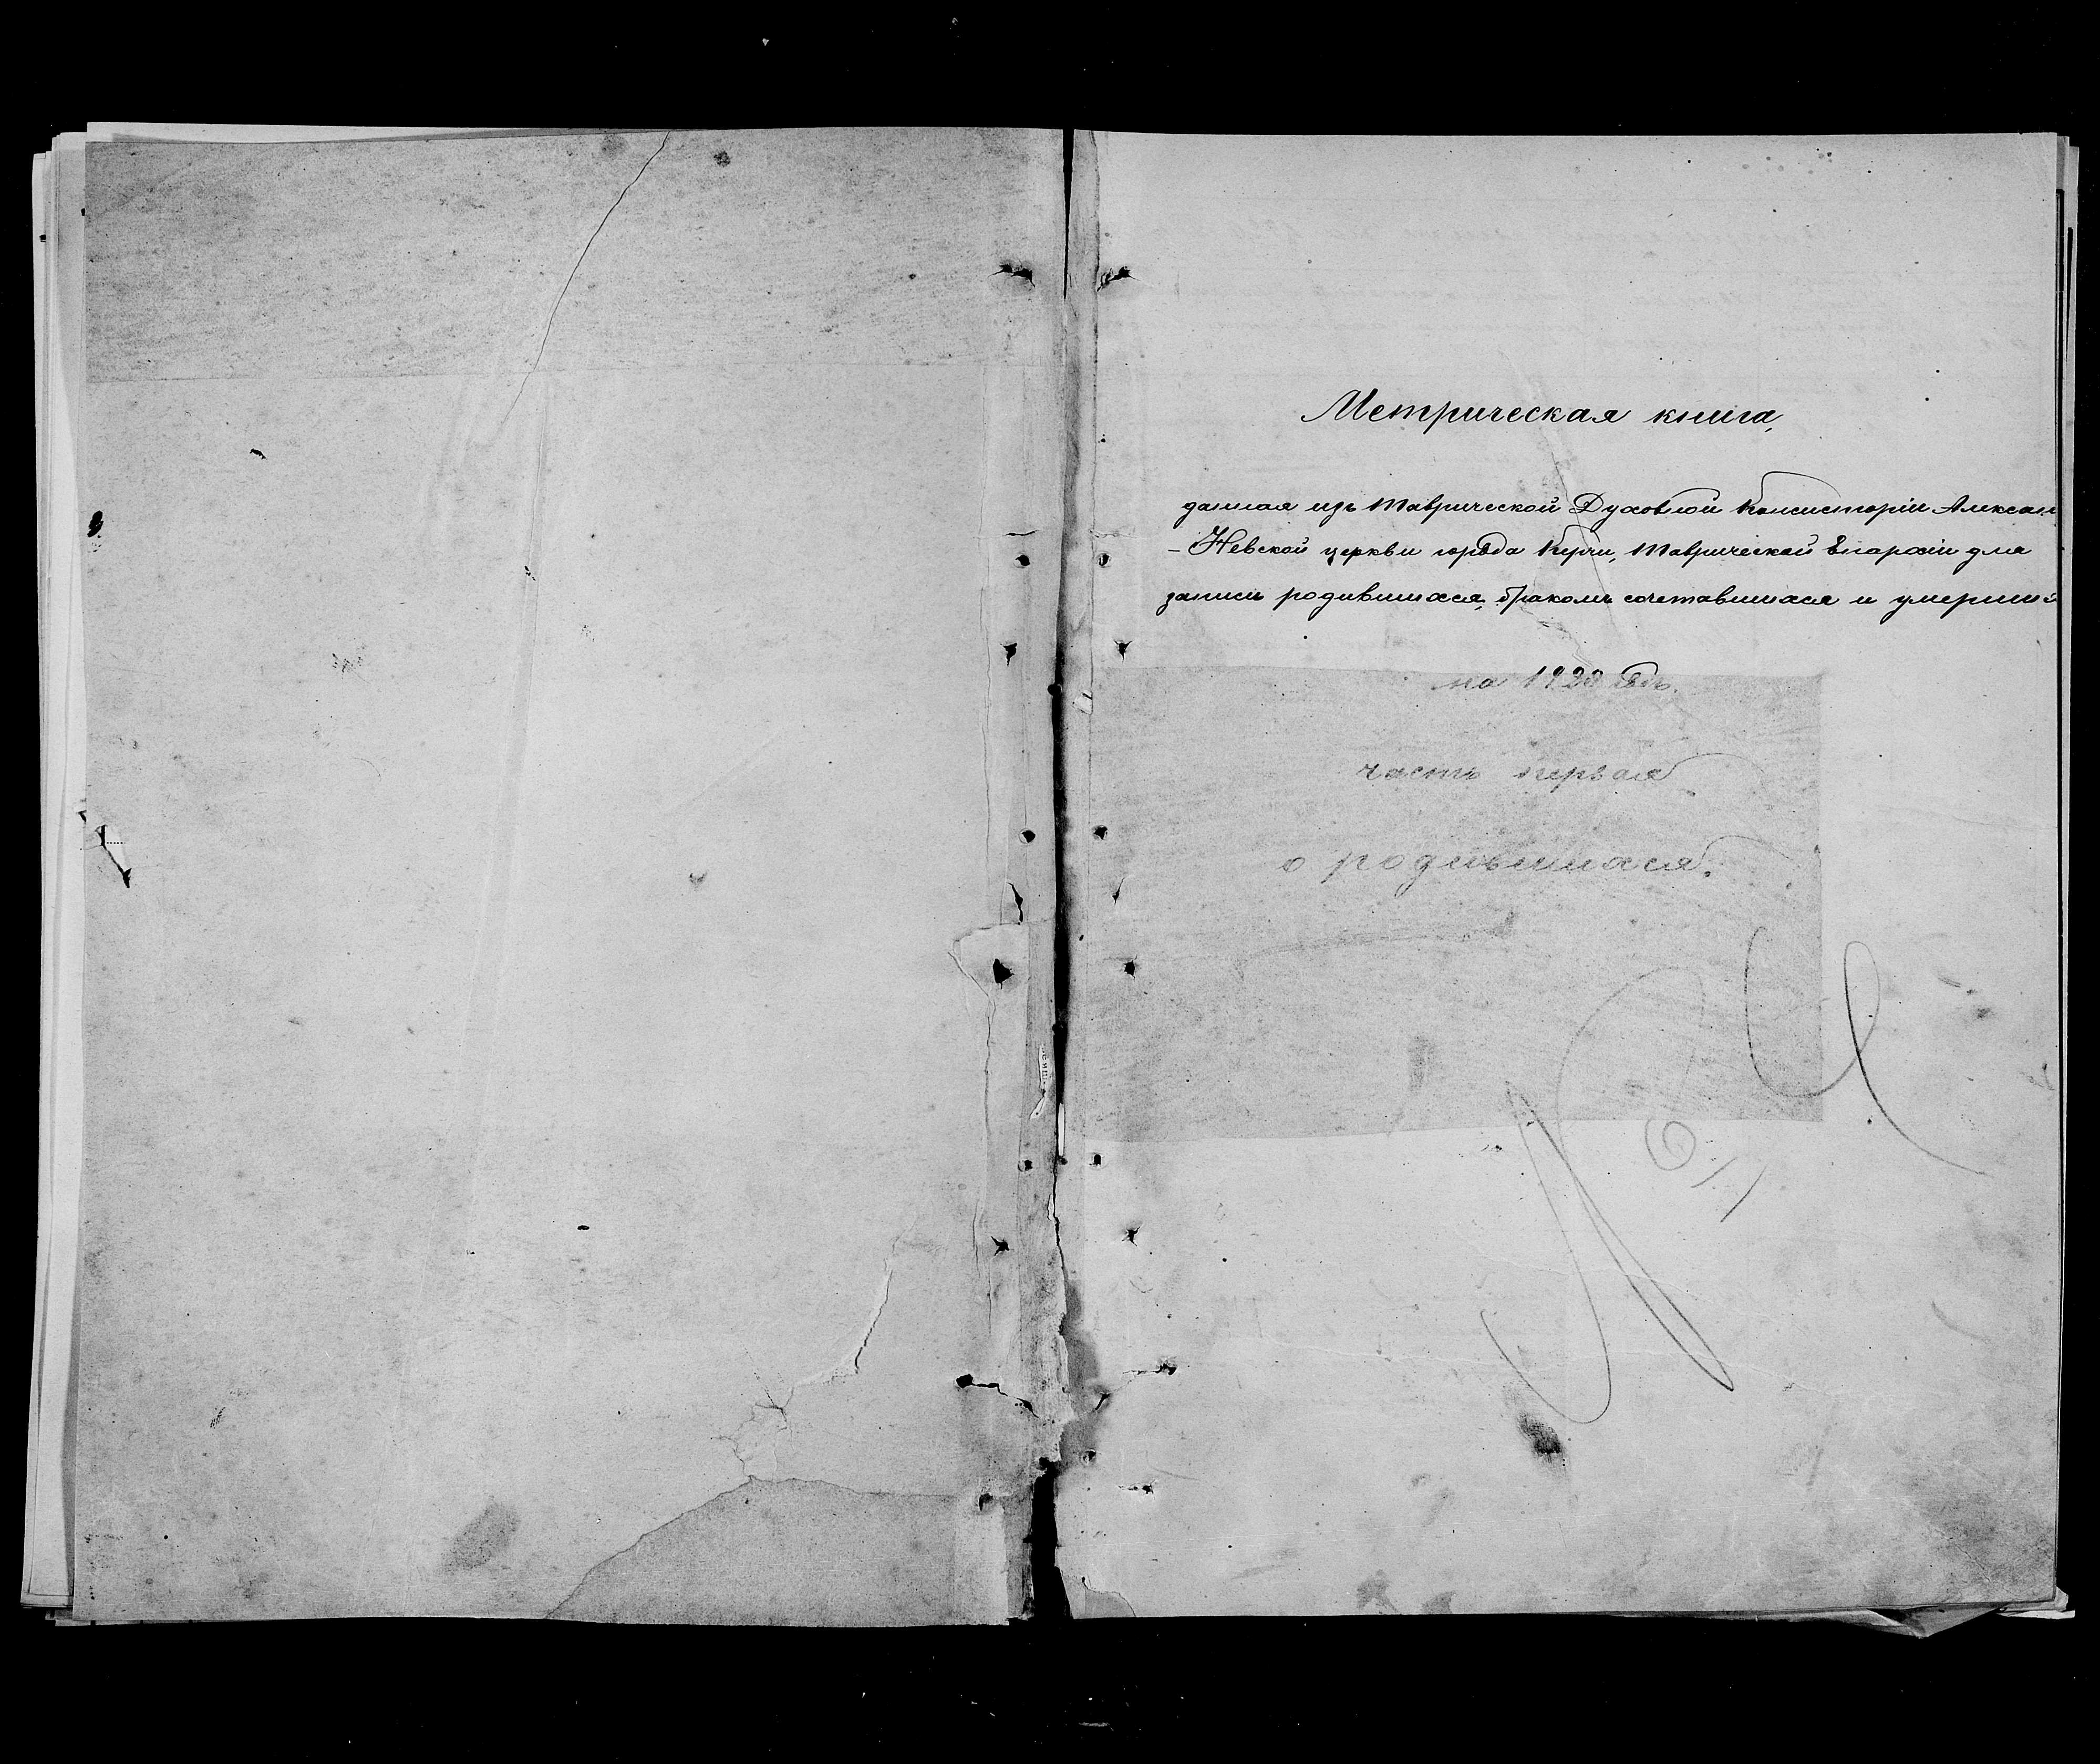 Метрическая книга,
данная изъ Таврической Духовной Консисторіи Алексан
- Невской церкви города Керчи, Таврической Епархіи для
записи родившихся, бракомъ сочетавшихся и умерши
на 1920 годъ.
часть первая
о родившихся.